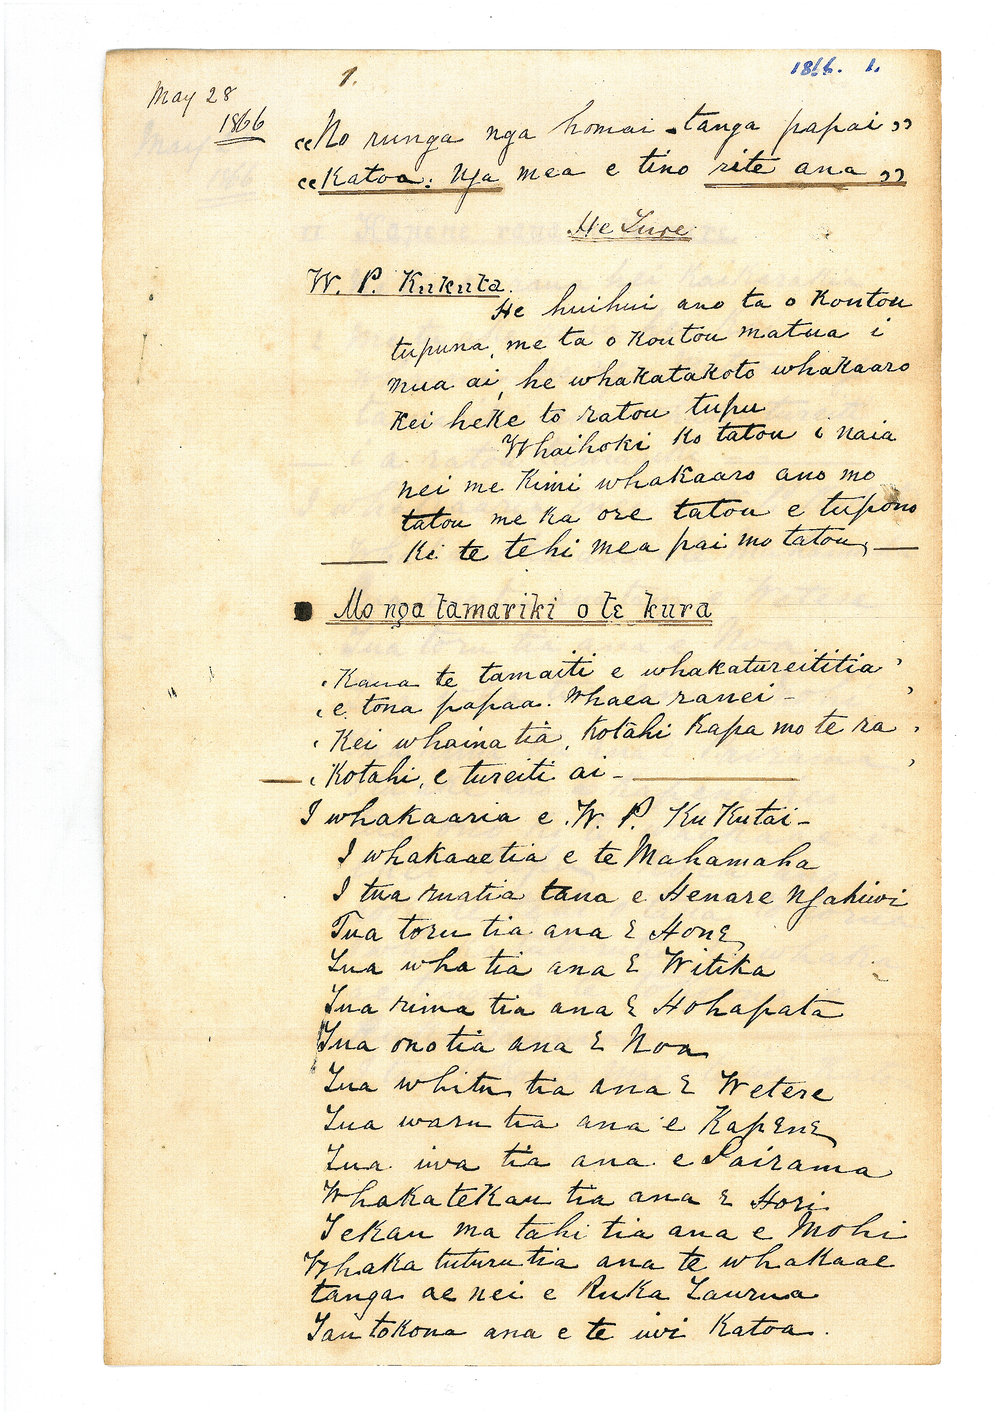 1.
1866. 1.
May 28
1866
"No runga nga homai-tanga papai"
"Katoa: Nga mea e tino rite ana"
He Ture
W. P. Kukuta.
He huihui ano ta o Koutou
tupuna, me ta o Koutou matua i
mua ai, he whakatakoto whakaaro
Kei heke to ratou tupu
Whaihoki Ko tatou i naia
nei me Kimi whakaaro ano mo
tatou me ka ore tatou e tupono
Ki te tehi mea pai mo tatou, —
Mo nga tamariki o te kura
'Kaua te tamaiti e whakatureititia'
'e tona papaa. Whaea ranei - '
'Kei whaina tia, Kotahi Kapa mo te ra '
— 'Kotahi, e tureiti ai - —— '
I whakaaria e W. P. Ku Kutai -
I whakaaetia e te Mahamaha
I tua ruatia tana e Henare Ngahiwi
Tua toru tia ana E Hone
Tua wha tia ana E Witika
Tua rima tia ana E Hohapata
Tua onotia ana E Noa
Tua whitu tia ana E Wetere
Tua waru tia ana e Kapene
Tua iwa tia ana e Pairama
Whakatekau tia ana E Hori
Tekau ma tahi tia ana e Mohi
Whaka tuturu tia ana te whakaae
tanga ae nei e Ruka Taurua
Tau tokona ana e te iwi Katoa.